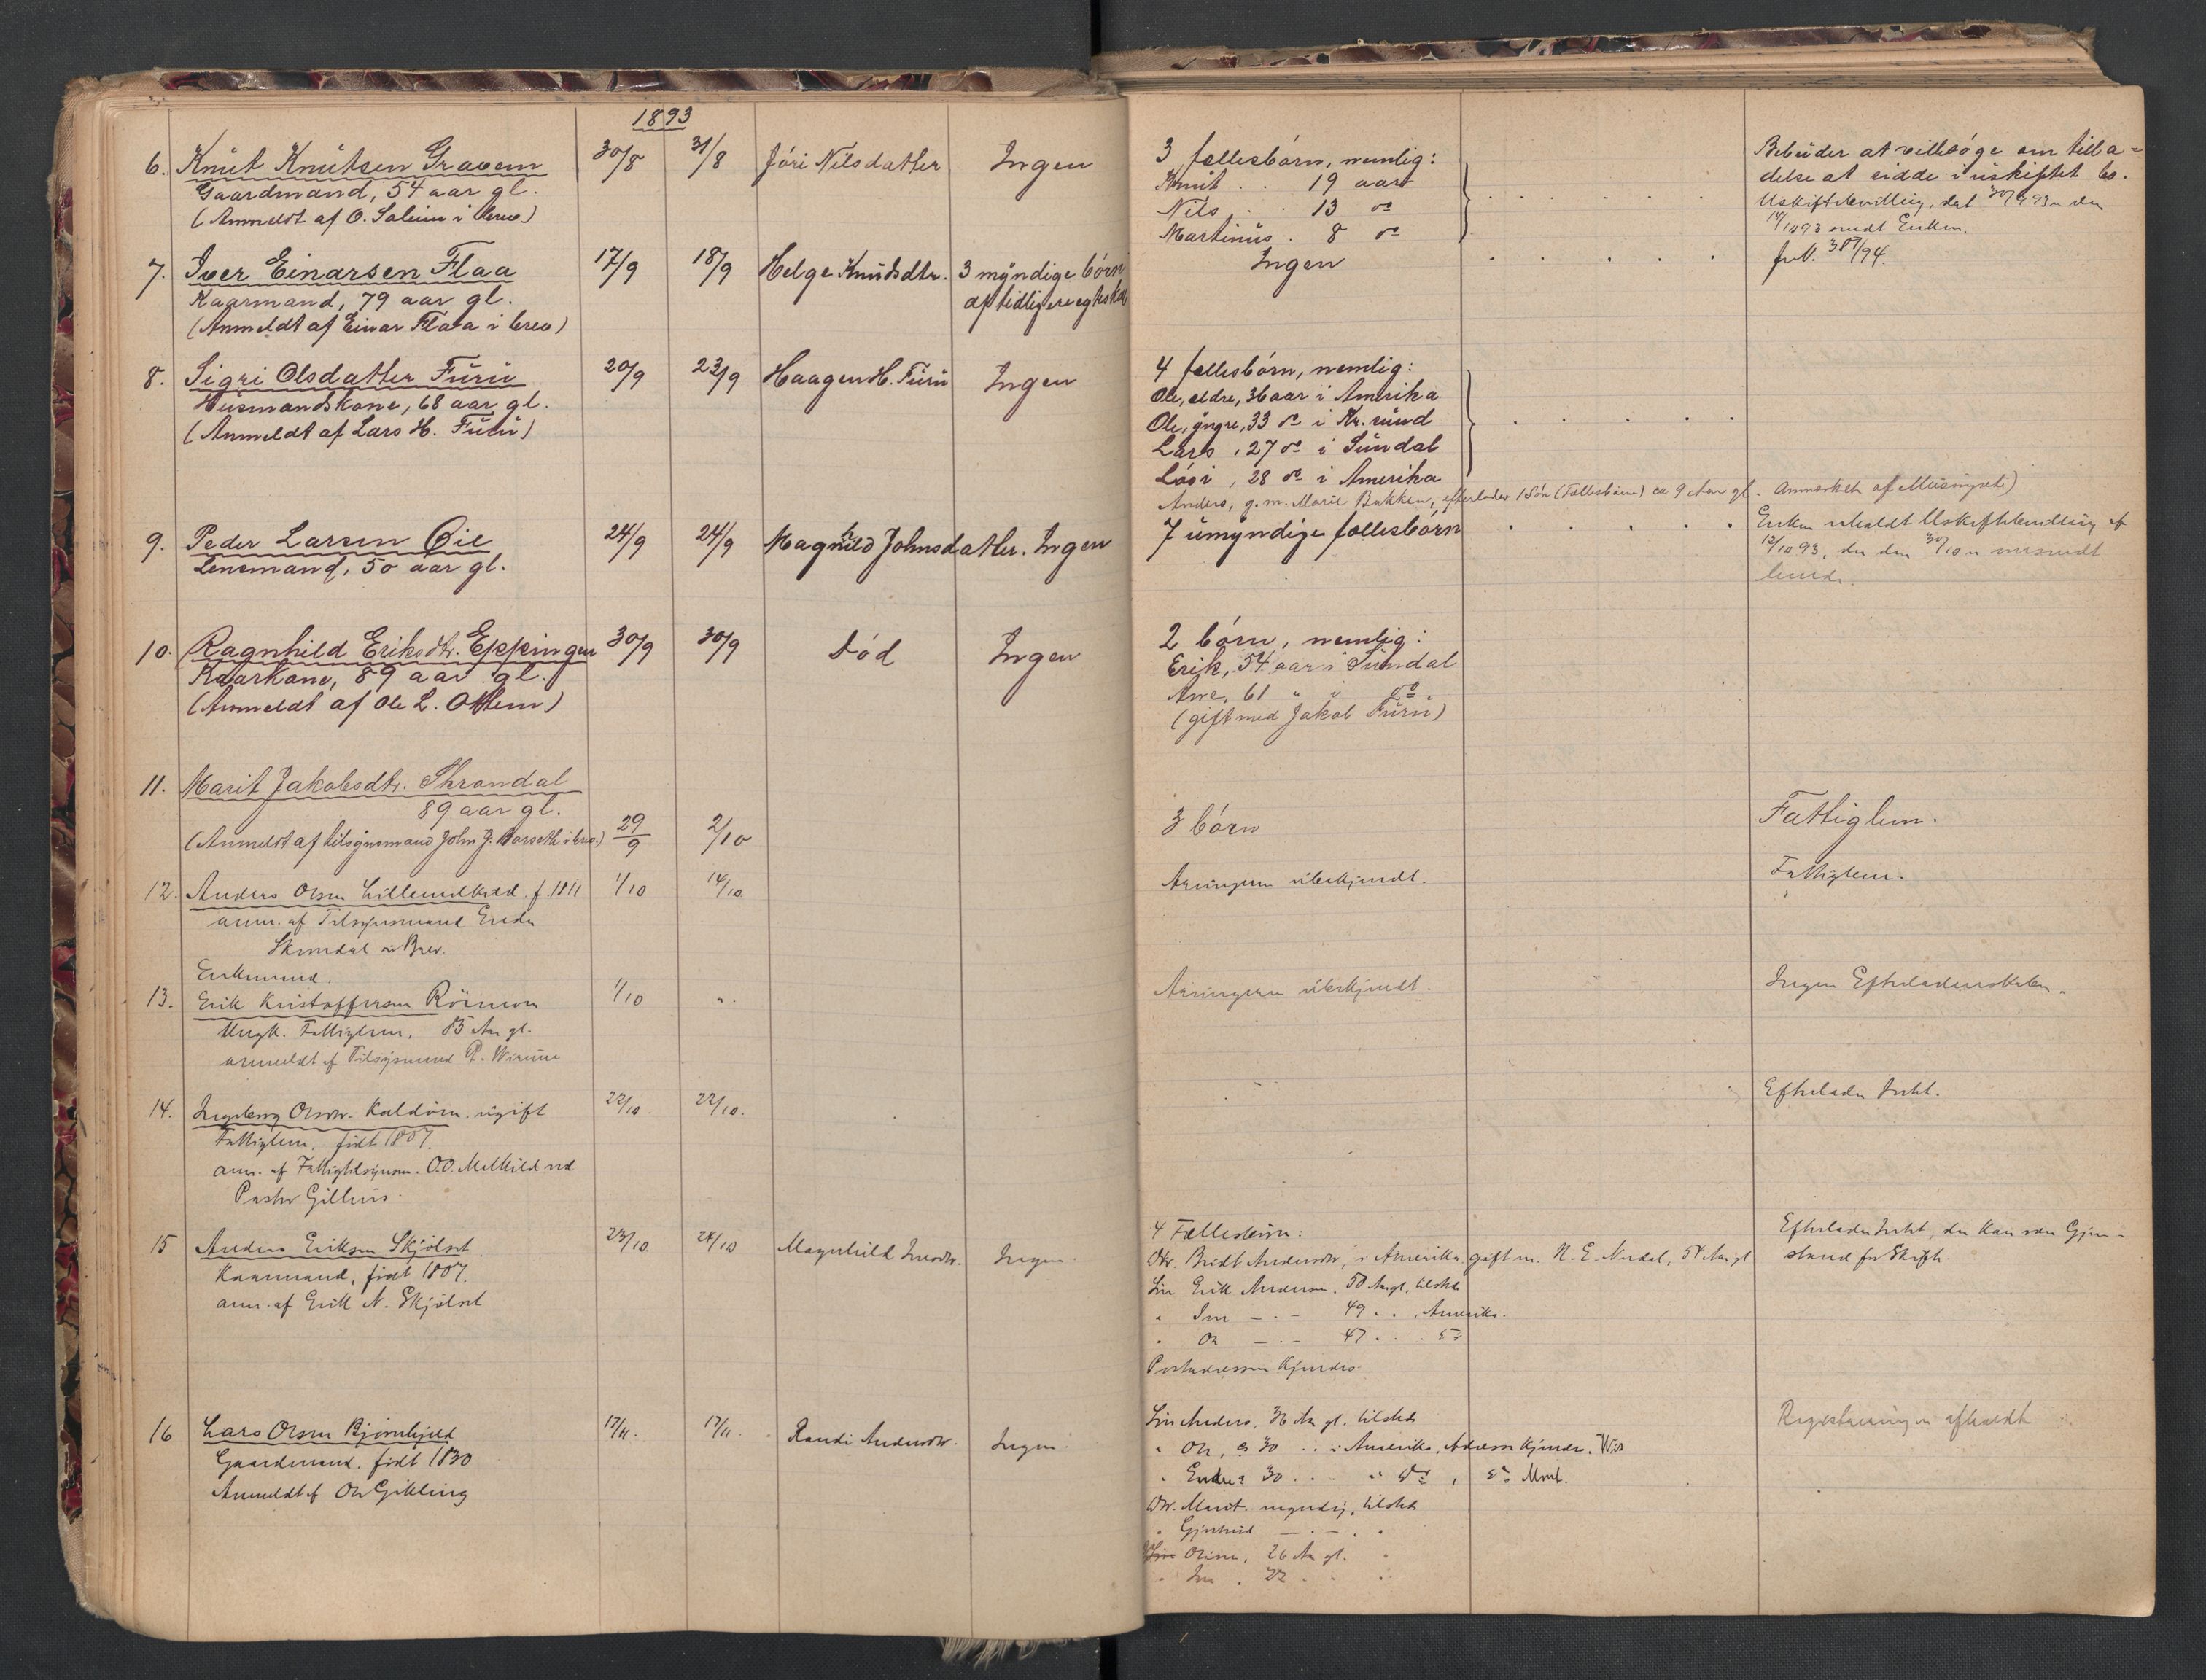 1893
6. Knut Knutsen Gravem 30/8 31/8 Jóri Nilsdatter Ingen
Gaardmand, 54 aar gl.
(Anmeldt af O. Solem i brev)
7. Iver Einarsen Flaa 17/9 18/9 Helge Knudsdtr. 3 myndige børn
Kaarmand, 79 aar gl. af tidligere egteskab
(Anmeldt af Einar Flaa i brev)
8. Sigri Olsdatter Furu 20/9 23/9 Haagen H. Furu Ingen
Husmandskone, 68 aar gl.
(Anmeldt af Lars H. Furu)
9. Peder Larsen Øie 24/9 24/9 Magnhild Johnsdatter. Ingen
Lensmand, 50 aar gl.
10. Ragnhild Eriksdtr. Eppingen 30/9 30/9 Død Ingen
Kaarkone, 89 aar gl.
(Anmeldt af Ole L. Ottem)
11. Marit Jakobsdtr. Throndal
89 aar gl.
(Anmeldt af tilsynsmand John J. Børseth i brev.) 29/9 2/10
12. Anders Olsen Lillemelkild. f. 1811 1/10 14/10
anm. af Tilsynsmand Endr.
i Brev.
Enkemand.
13. Erik Kristoffersen 1/10 "
Ungk. Fattiglem, 85 Aar gl.
anmeldt af Tilsynsmand P.
14. Ingeborg Olsdtr. ugift 22/10. 22/10.
Fattiglem, født 1807.
anm. af Fattigtilsynsm. O.O. Melkild ved
Pastor
15 Anders Eriksen Skjølset 23/10. 24/10 Magnhild Iversdtr. Ingen
Kaarmand, født 1807.
anm. af Erik N. Skjølset
16 Lars Olsen Bjørnhjell 17/11. 17/11. Randi Andersdtr. Ingen
Gaardmand, født 1830
Anmeldt af Ole Gikling
3 fællesbørn, nemlig:
Knut . . 19 aar
Nils . . 13 do
Martinus . 8 do
Bebuder at ville søge om tilla-
delse at sidde i uskiftet bo.
Uskiftebevilling, dat 30/9 93 n den
14/10 93 sendt Enken.
Ingen
Jnl. 387/94.
4 fællesbørn, nemlig:
Ole, eldre, 36 aar i Amerika
Ole, yngre, 33 do i Kr. sund
Lars, 27 do i Sundal
28 do i Amerika
Anders, g. m. Marie Bakken, efterlader 1 Søn (Fællesbarn) ca 9 Aar gl. Anmerket af
7 umyndige fællesbørn
Enken meddelt Uskiftebevilling af
12/10 93, der den 30/10 n oversendt
hende.
2 børn, nemlig:
Erik, 54 aar i Sundal
Anne, 61 " i do
(gift med Jakob Furu)
3 børn
Fattiglem.
Arvingerne ubekjendt.
Fattiglem.
Arvingerne ubekjendt.
Ingen Efterladenskaber.
Efterlader Intet.
4 Fællesbørn:
Dtr. Beret Andersdtr, i Amerika, gift m. N. E. Nerdal, 54 Aar gl
Søn Erik Andersen, 50 Aar gl, tilstede
" Iver — . — 49 " " , Amerika.
" Ole — . — 47 " " do
Postadressen kjendes.
Efterlader Intet, der kan være Gjen-
stand for Skifte.
Søn Anders, 36 Aar gl. tilstede
" Ole, er 30 " " i Amerika, Adresse kjendes. Wis
" Endre 30 " " do , do Mont.
Dtr. Marit myndig, tilstede
" Gjertrud — . — "
Oline, 26 Aar gl. "
" 22 " "
Registrering er afholdt